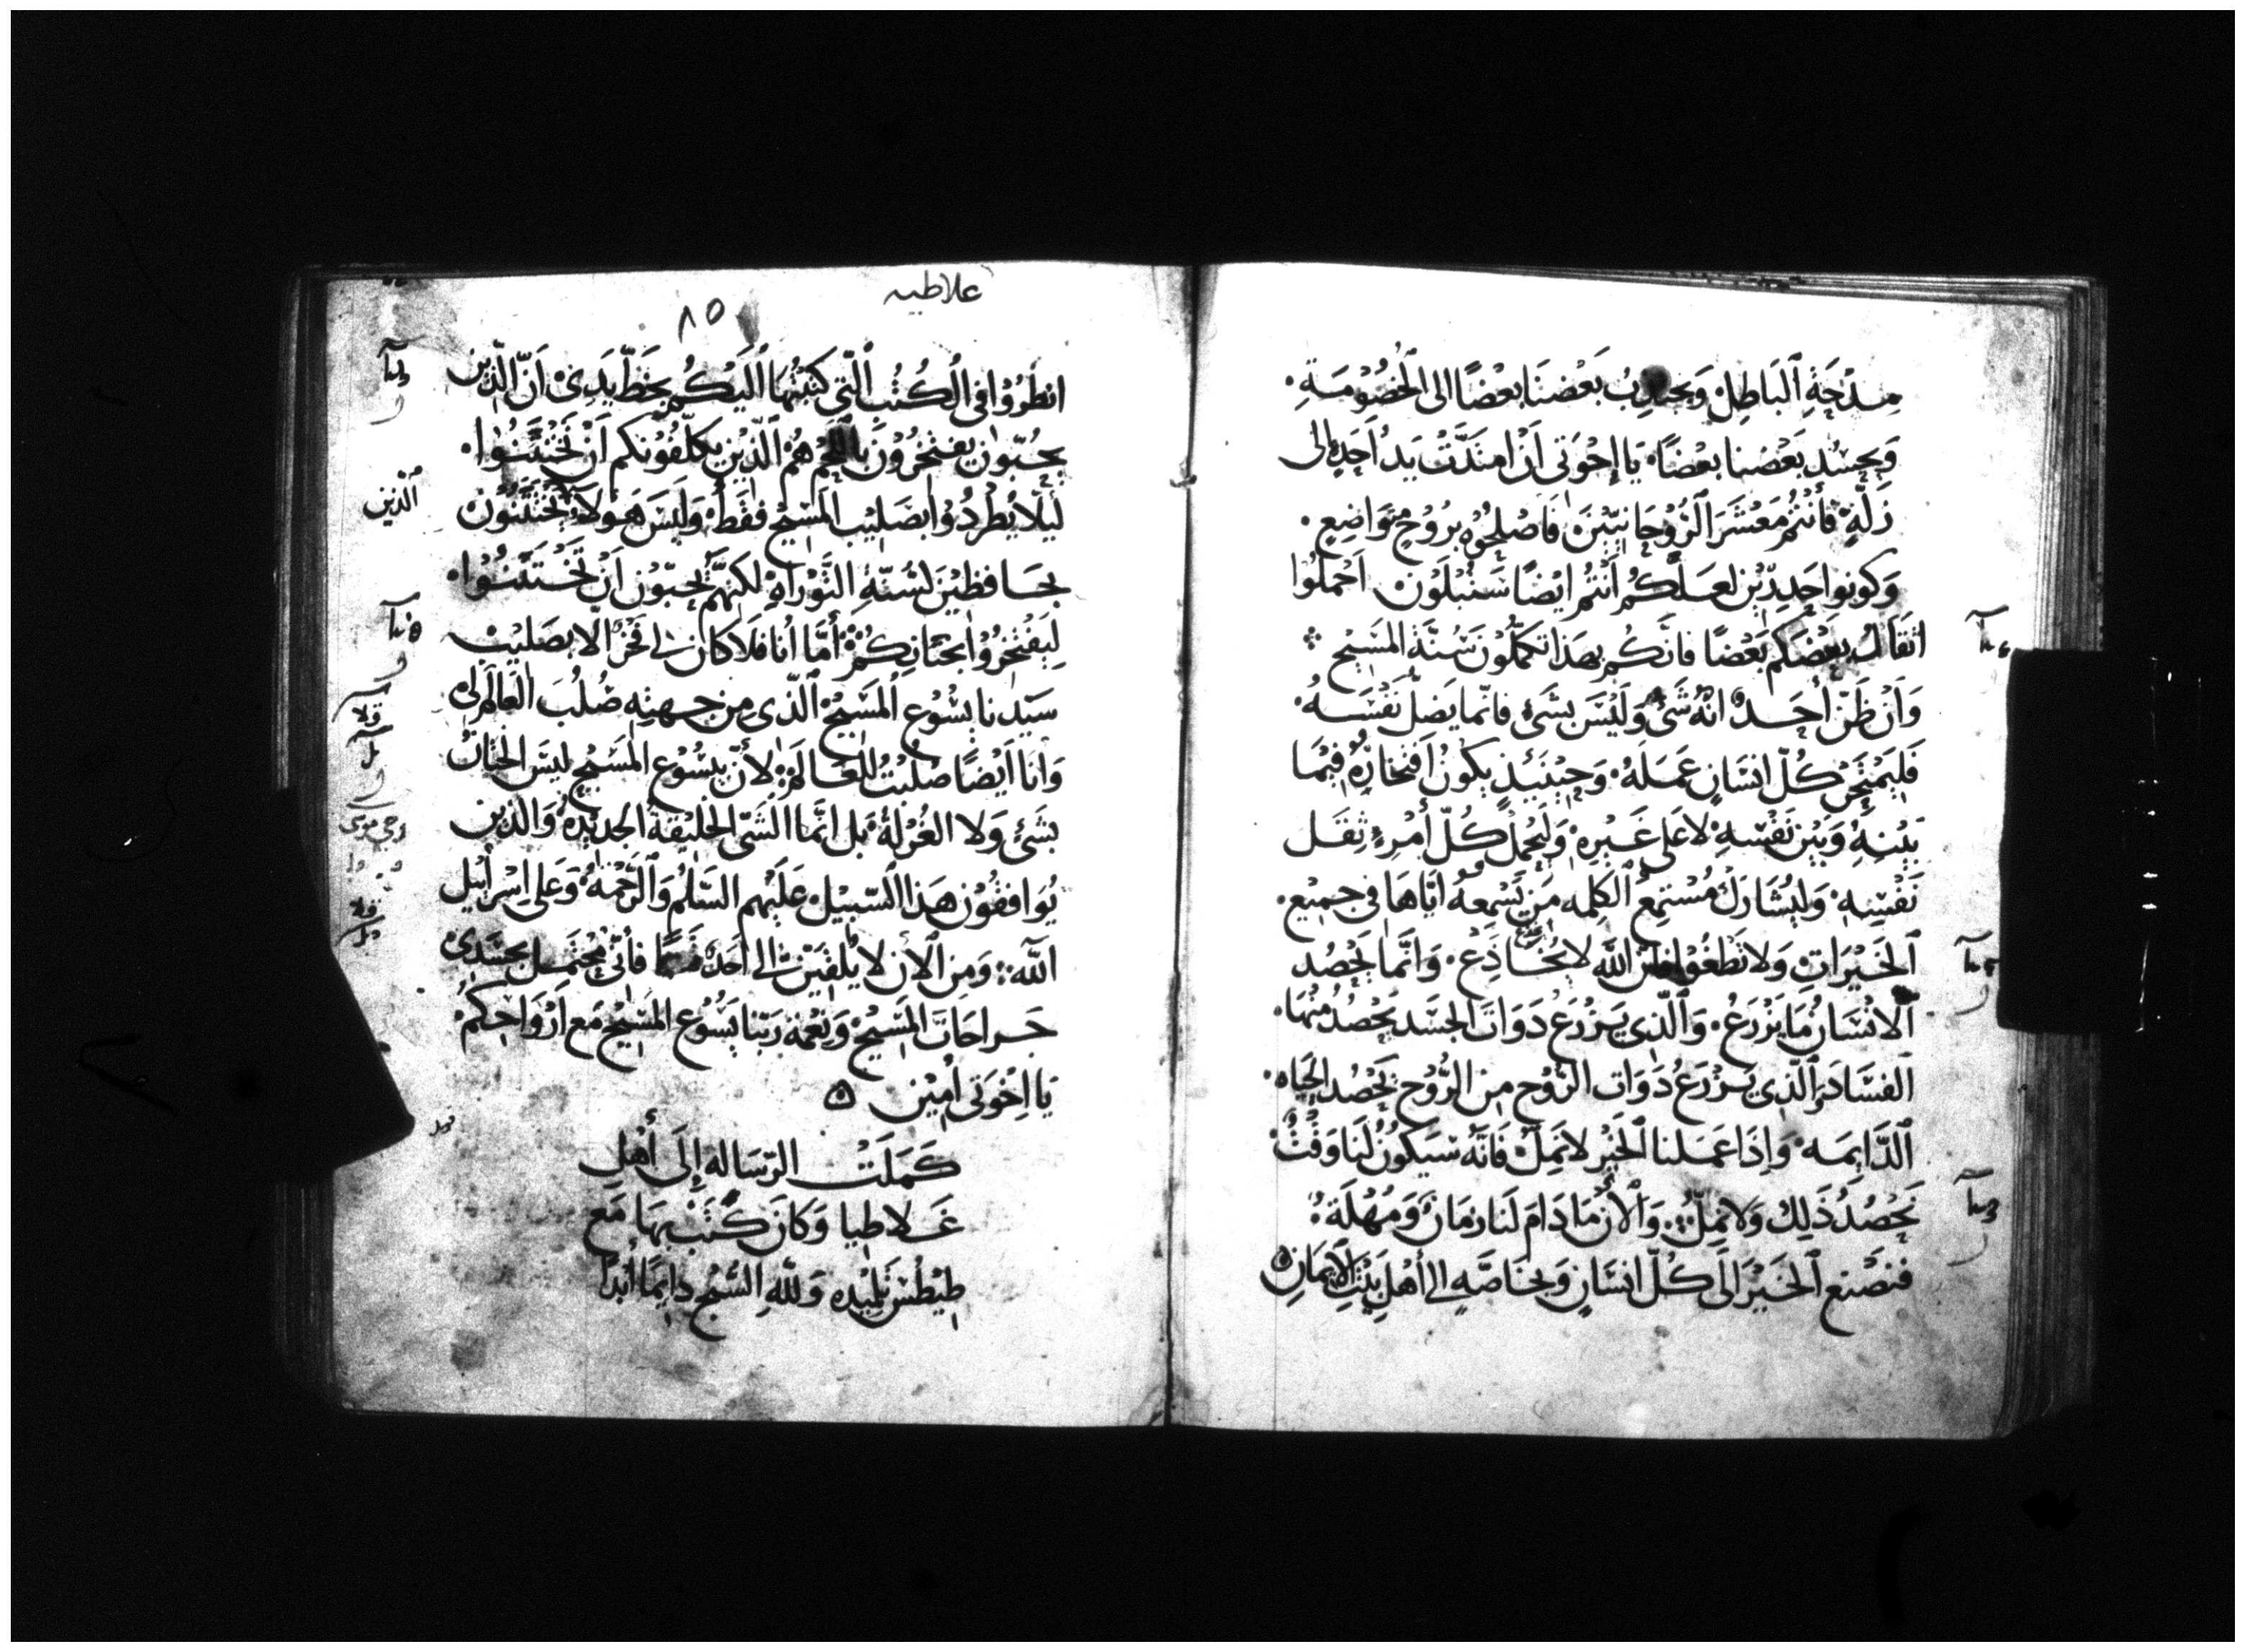 مدحة الباطل ويجاذب بعضنا بعضًا الى الخصومة.
ويحسد بعضنا بعضًا. يا إخوتي اَنْ امتدّت يد اَحدٍ الى
زلّةٍ فأنتم معشر الرّوحانيّين فاصلحوه بروحٍ متواضعٍ.
وكونوا حذِرين لعلّكم اَنتم ايضًا ستبلون احملوا
اثقال بعضكم بعضًا فانكم بهذا تكملون سُنّة المسيح
وَاَنْ ظنّ أحد انّه شئ وليس بشئ فانما يضل نفسه.
فليمتحن كلّ انسانٍ عمله. وحينيذ يكون افتخاره فيما
بينه وبين نفسه لا على غيره. وليحمل كلّ أمرءٍ ثقل
نفسه. وليشارك مستمع الكلمه من يسمعه ايّاها في جميع.
الخيرات ولا تطغوا فان الله لا يخادع. وانّما يحصد
الانسان ما يزرع. والّذي يزرع ذوات الجسد يحصد منها.
الفساد والّذي يزرع ذوات الروح من الروح يحصد الحياه.
الدّايمه وَاِذا عملنا الخير لا نملّ فانّه سيكون لنا وقتٌ
نحصد ذلك ولا نملّ. والأن ما دام لنا زمان ومهلة.
فنصنع الخير الى كلّ انسانٍ وبخاصّهٍ الى أهل بيت الايمان
غلاطيه
٨٥
انظروا في الكتب الّتي كتبتها اليكم بخطّ يدي اَنّ الذين
يحبّون يفتخرون باللحم هم الّذين يكلّفونكم اَن تختتنوا.
ليلا يُطردوا بصليب المسيح فقط. وليس هولاء يختتنون
الّذين
بحافظين لسنّة التوراة لكنهم يحبّون اَن تختتنوا.
ليفتخروا بختانكم أمّا أنا فلا كان لي فخر الّا بصليب
سيّدنا يسوع المسيح الّذي من جهته صُلب العالم لي
وانا اَيضًا صلبت للعالم. لأنّ بيسوع المسيح ليس الختان
بشئ ولا الغرلة. بل انّما الشئ الخليقة الجديدة والّذين
يوافقون هذا السّبيل عليهم السّلم والرّحمة وعلى اِسرأيل
الله. ومن الأن لا يلقين الى احد فأنّي محتمل بجسدي
جراحات المسيح ونعمة ربّنا يسوع المسيح مع اَرواحكم.
يا اِخوتي أمين
كملت الرّساله إلى أهل
غلاطيا وكان كتب بها مع
طيطس تلميذه وللّه السّبح دايمًا أبدًا